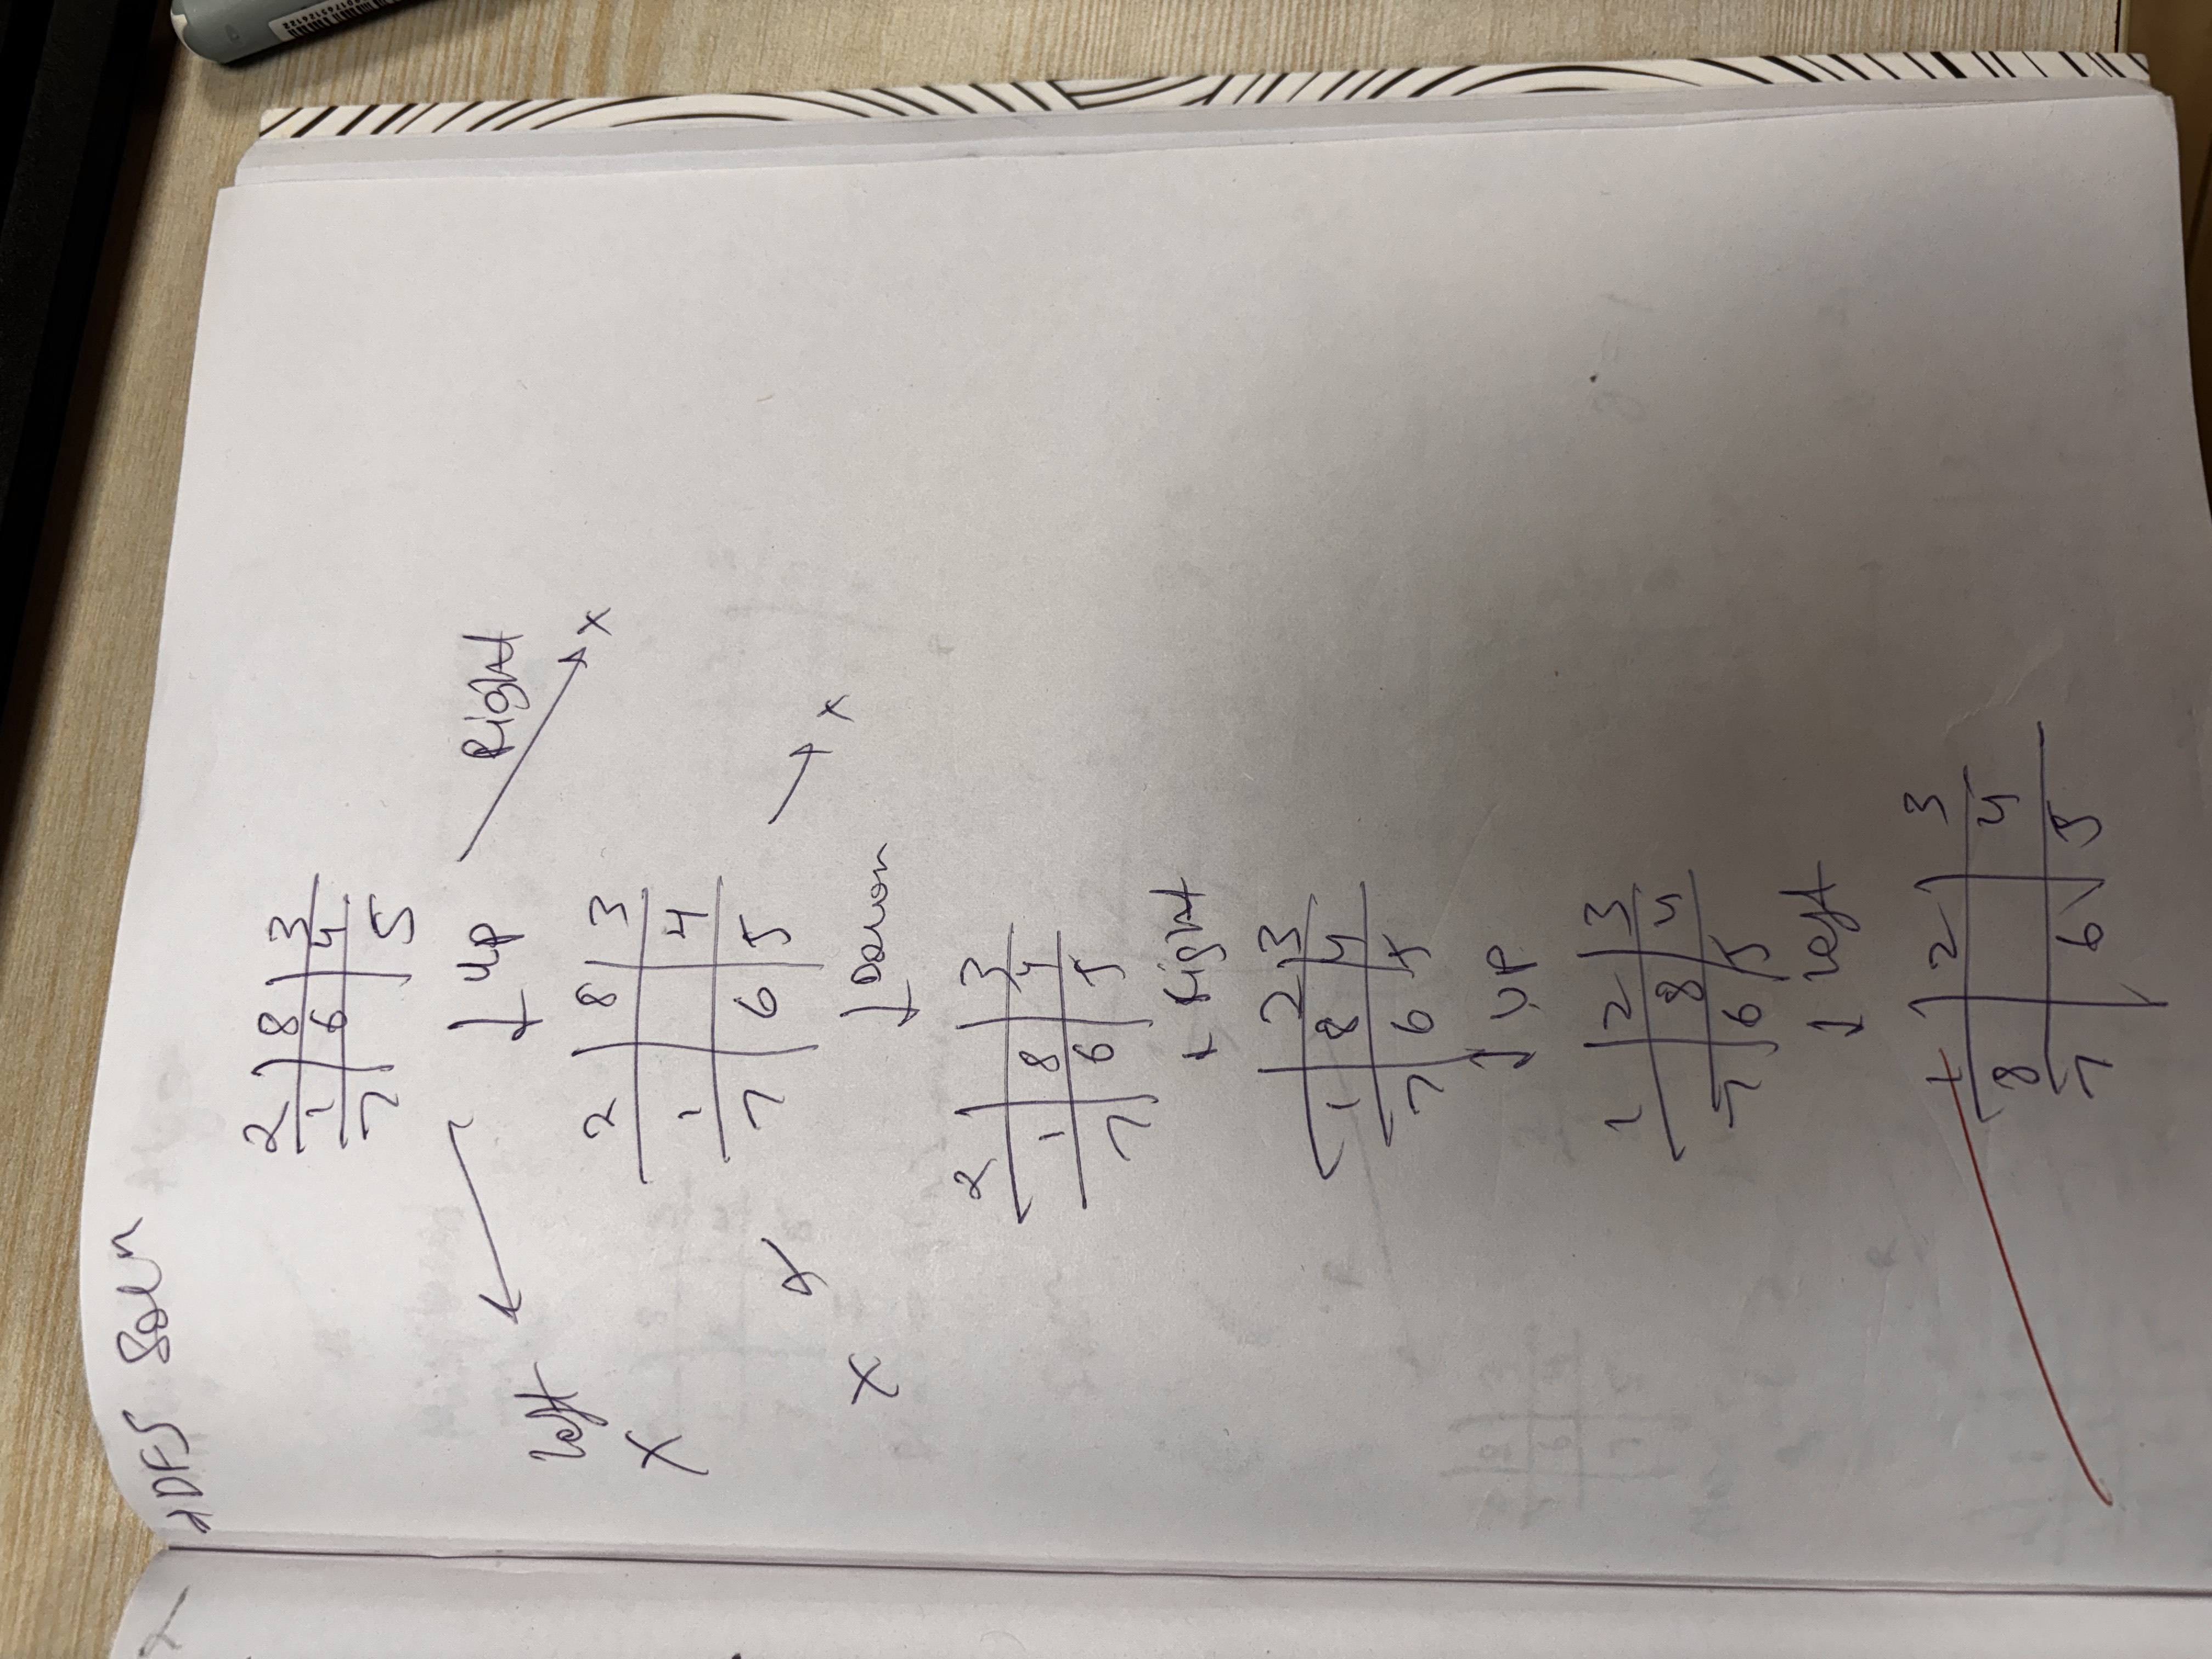 DFS Soln
2 8 3
1 6 4
7 5
Up
Right
left
x
X
2 8 3
1 4
7 6 5
x
X
Down
2 3
1 8 4
7 6 5
Right
2 3
1 8 4
7 6 5
UP
1 2 3
8 4
7 6 5
left
1 2 3
8 4
7 6 5